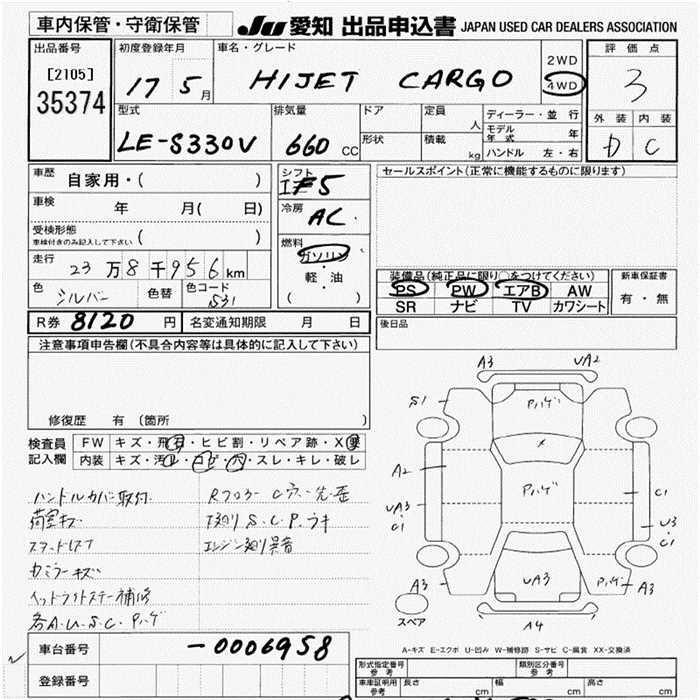 車内保管・守衛保管 JU 愛知 出品申込書 JAPAN USED CAR DEALERS ASSOCIATION
出品番号 初度登録年月 車名・グレード 2WD 評価点
[2105] 17 5月 HIJET CARGO 4WD 3
35374
型式 排気量 ドア 定員 人 ディーラー・並行 外装 内装
LE-S330V 660 CC 形状 積載 kg モデル年式 年 D C
ハンドル 左・右
車歴 自家用・( ) シフト セールスポイント(正常に機能するものに限ります)
IF5
車検 年 月( 日) 冷房
AC
受検形態 ( )
車検付きのみ記入して下さい
燃料
ガソリン
走行 23万8千956km 軽・油
( )
装備品(純正品に限り○をつけてください) 新車保証書
色 シルバー 色替 色コード S31 PS PW エアB AW 有・無
SR ナビ TV カワシート
R券 8120 円 名変通知期限 月 日 後日品
注意事項申告欄(不具合内容等は具体的に記入して下さい)
修復歴 有 (箇所 )
検査員 FW キズ・飛石・ヒビ割・リペア跡・X要
記入欄 内装 キズ・汚レ・コゲ・穴・スレ・キレ・破レ
ハンドルカバー取付
荷室キズ S.C.P.
エンジン廻り異音
キズ
補修
各A.U.S.C.Pハゲ
A3 UA2
S1 Pハゲ
X
A2 Pハゲ C1
UA3 U3
C1 C1
A3 UA3 Pハゲ A3
スペア A4
A-キズ E-エクボ U-凹み W-補修跡 S-サビ C-腐食 XX-交換済
車台番号 -0006958
登録番号
形式指定番号 参考 類別区分番号 参考
車庫証明用 参考 長さ cm 幅 cm 高さ cm